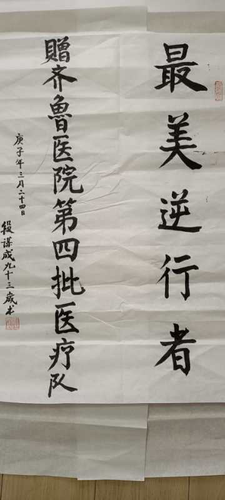 最美逆行者
赠齐鲁医院第四批医疗队
庚子年三月二十四日
段谋成九十三岁书